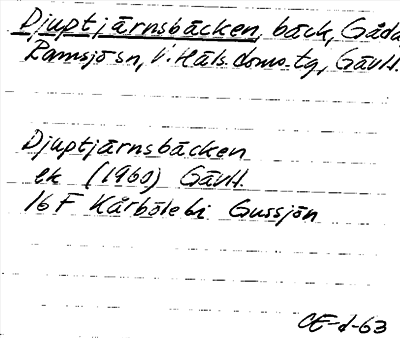 Djuptjärnsbäcken, bäck, Gåda,
Ramsjö sn, V. Häls. doms. tg, GävH.
Djuptjärnsbäcken
ek (1960) GävH.
16 F Kårbölebi Gussjön
CE-d-63